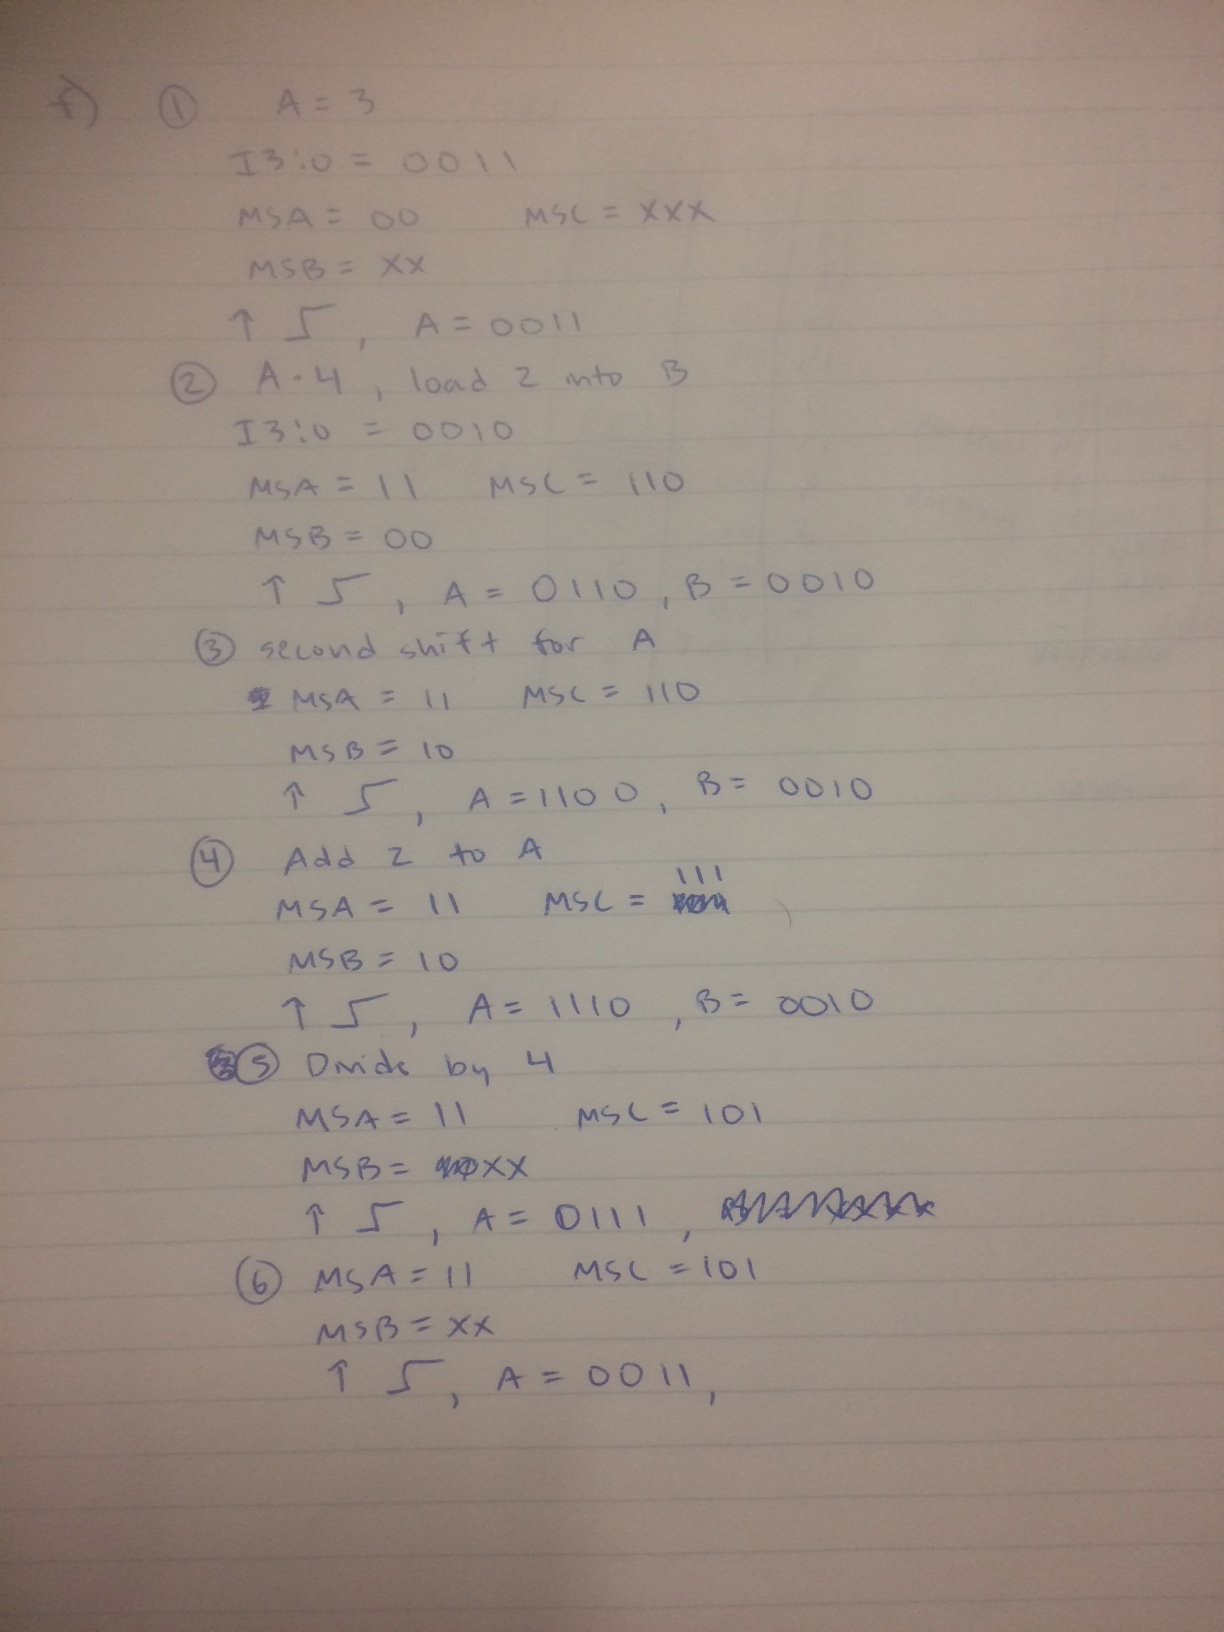 f) ① A = 3
I3:0 = 0011
MSA = 00 MSC = XXX
MSB = XX
↑ , A = 0011
② A · 4 , load 2 into B
I3:0 = 0010
MSA = 11 MSC = 110
MSB = 00
↑ , A = 0110 , B = 0010
③ second shift for A
MSA = 11 MSC = 110
MSB = 10
↑ , A = 1100 , B = 0010
④ Add 2 to A
MSA = 11 MSC = 111
MSB = 10
↑ , A = 1110 , B = 0010
⑤ Divide by 4
MSA = 11 MSC = 101
MSB = XX
↑ , A = 0111 ,
⑥ MSA = 11 MSC = 101
MSB = XX
↑ , A = 0011 ,